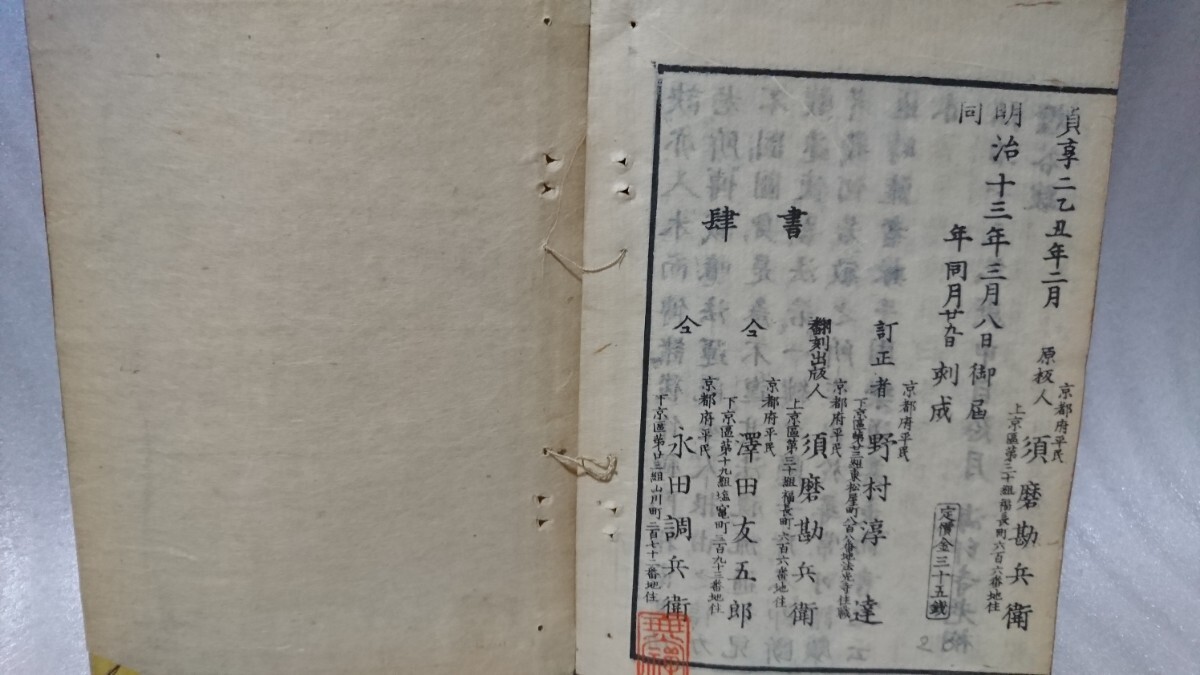 貞享二乙丑年二月
明治十三年三月八日御届
同年同月廿九日刻成
京都府平民
原板人 須磨勘兵衛
上京區第三十組福長町六百六番地住
定價金三十五錢
書肆
京都府平民
訂正者 野村淳達
下京區第廿三組東松屋町八百八番地法光寺住職
京都府平民
翻刻出版人 須磨勘兵衛
上京區第三十組福長町六百六番地住
京都府平民
仝 澤田友五郎
下京區第十九組塩竈町三百九十三番地住
京都府平民
仝 永田調兵衛
下京區第廿三組山川町二百七十二番地住